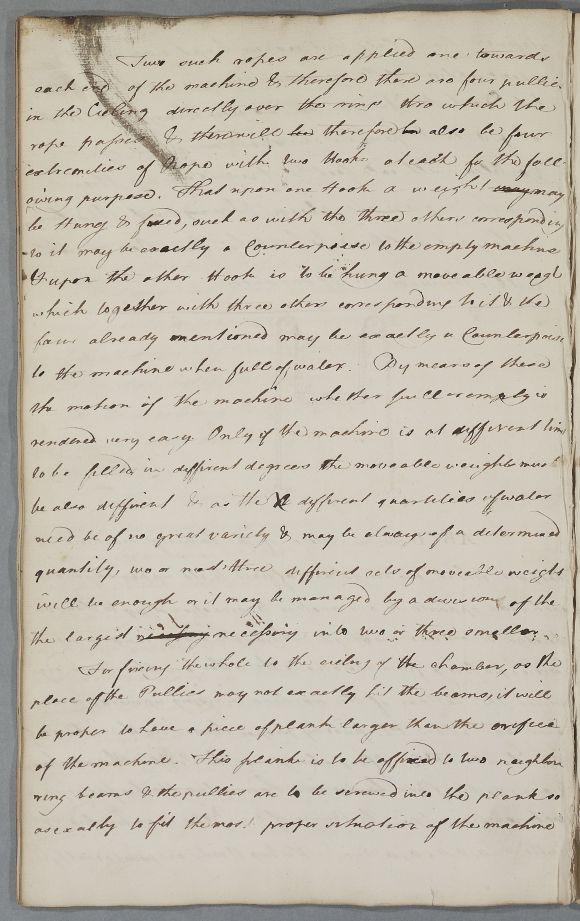 Two such ropes are applied one towards
each end of the machine & therefore there are four pullies
in the Cieling directly over the rings thro which the
rope passes & there will therefore also be four
extremities of rope with two Hooks at each for the foll-
owing purpose. That upon one Hook a weight may
be Hung & fixed, such as with the three others corresponding
to it may be exactly a Counterpoise to the empty machine
& upon the other Hook is to be hung a moveable weight
which together with three others corresponding to it & the
four already mentioned may be exactly a Counterpoise
to the machine when full of water. By means of these
the motion of the machine whether full or empty is
rendered very easy Only if the machine is at different times
to be filled in different degrees the moveable weights must
be also different & as the different quantities of water
need be of no great variety & may be always of a determined
quantity, two or most three different sets of moveable weights
will be enough or it may be managed by a division of the
the largest necessary into two or three smaller.
For fixing the whole to the ceiling of the chamber, as the
place of the Pullies may not exactly hit the beams, it will
be proper to have a piece of plank larger than the orifice
of the machine. This plank is to be affixed to two neighbou
ring beams & the pullies are to be screwed into the plank so
as exactly to fit the most proper situation of the machine